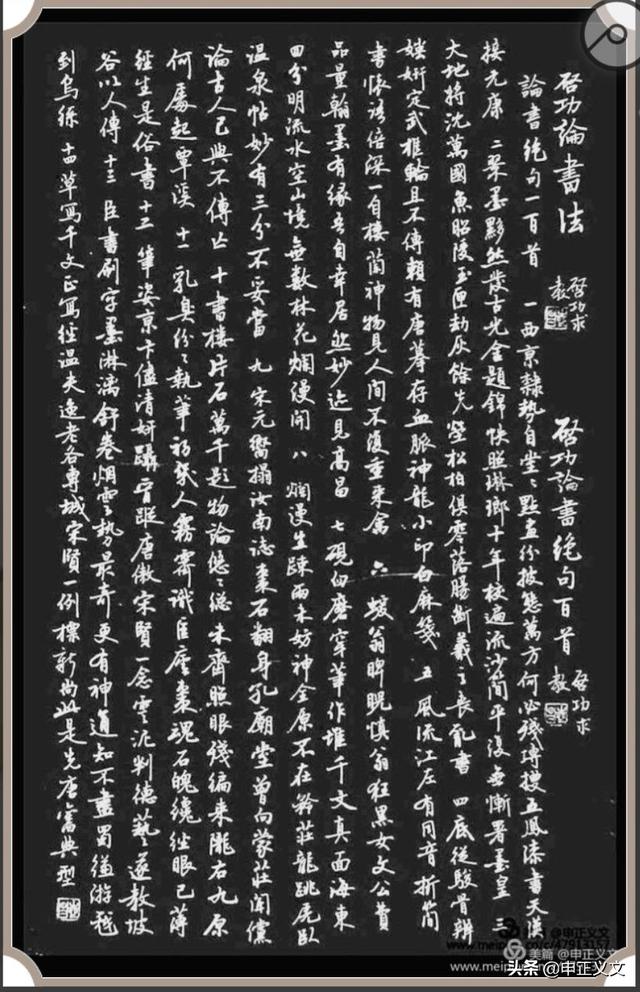 启功論書法 启功求教
启功論書絕句百首 启功求教
論書絕句一百首 一西京隸勢自堂〻點畫紛披態萬方何必殘塼搜五鳳漆書天漢
接元康 二翠墨黟然發古光金題錦帙照琳瑯十年校遍流沙簡平復無慚署墨皇 三
大地將沈萬國魚昭陵玉匣劫灰餘先塋松柏俱零落腸斷羲之喪亂書 四底從駿骨辨
媸妍定武椎輪且不傳賴有唐摹存血脈神龍小印白麻箋 五風流江左有同音折簡
書懷語倍深一自樓蘭神物見人間不復重來禽 六蝯翁睥睨慎翁狂黑女文公費
品量翰墨有緣吾自幸居然妙迹見高昌 七硯臼磨穿筆作堆千文真面海東
回分明流水空山境無數林花爛熳開 八爛漫生疎兩未妨神全原不在矜莊龍跳虎臥
溫泉帖妙有三分不妥當 九宋元嚮搨汝南誌棗石翻身孔廟堂曾向蒙莊聞儻
論古人已與不傳亡 十書樓片石萬千題物論悠〻總未齊照眼殘編來隴右九原
何處起覃溪 十一乳臭紛〻執筆初幾人霧霽識匡廬棗魂石魄纔經眼已薄
經生是俗書 十二筆姿京卞儘清妍躡晉蹤唐傲宋賢一念雲泥判德藝遂教坡
谷以人傳 十三臣書刷字墨淋漓舒卷烟雲勢最奇更有神通知不盡蜀縑游戲
到烏絲 十四草寫千文正寫經溫夫逸老各專城宋賢一例標新尚此是先唐舊典型
美篇 @申正义文
头条 @申正义文